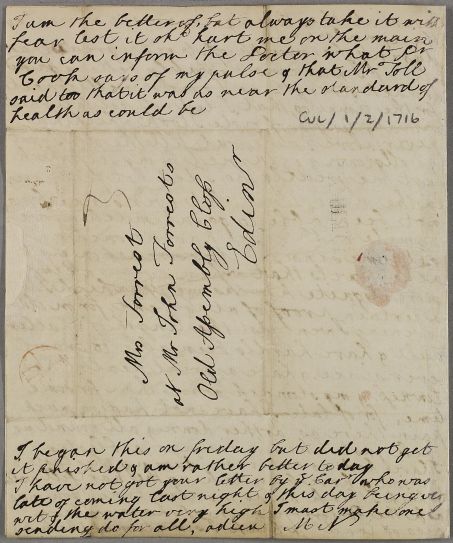 I am the better of, but always take it with
fear lest it shd hurt me on the main
you can inform the Doctor what Dr
Cook says of my pulse & that Mr Toll
said too that it was as near the standard of
health as could be
CUL/1/2/1716
Mrs Forrest
at Mr John Forrests
Old Assembly Closs
Edinr
I began this on friday but did not get
it finished & am rather better to day
I have not got your letter by ye Carr who was
late of coming last night & this day being very
wet & the water very high I must make one
sending do for all, adieu M N